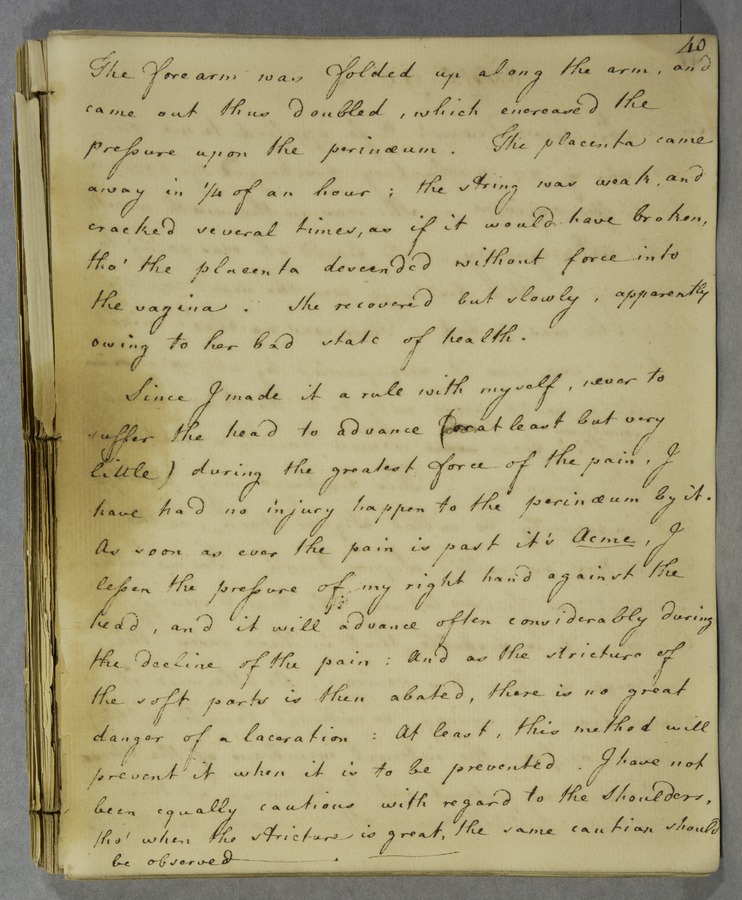 40
The forearm was folded up along the arm, and
came out thus doubled, which encreased the
pressure upon the perinæum. The placenta came
away in 1/4 of an hour; the string was weak, and
cracked several times, as if it would have broken,
tho' the placenta descended without force into
the vagina. She recovered but slowly, apparently
owing to her bad state of health.
Since I made it a rule with myself, never to
suffer the head to advance (or at least but very
little) during the greatest force of the pain, I
have had no injury happen to the perinæum by it.
As soon as ever the pain is past it's Acme, I
lessen the pressure of my right hand against the
head, and it will advance often considerably during
the decline of the pain: And as the stricture of
the soft parts is then abated, there is no great
danger of a laceration: At least, this method will
prevent it when it is to be prevented. I have not
been equally cautious with regard to the shoulders,
tho' when the stricture is great, the same caution should
be observed.